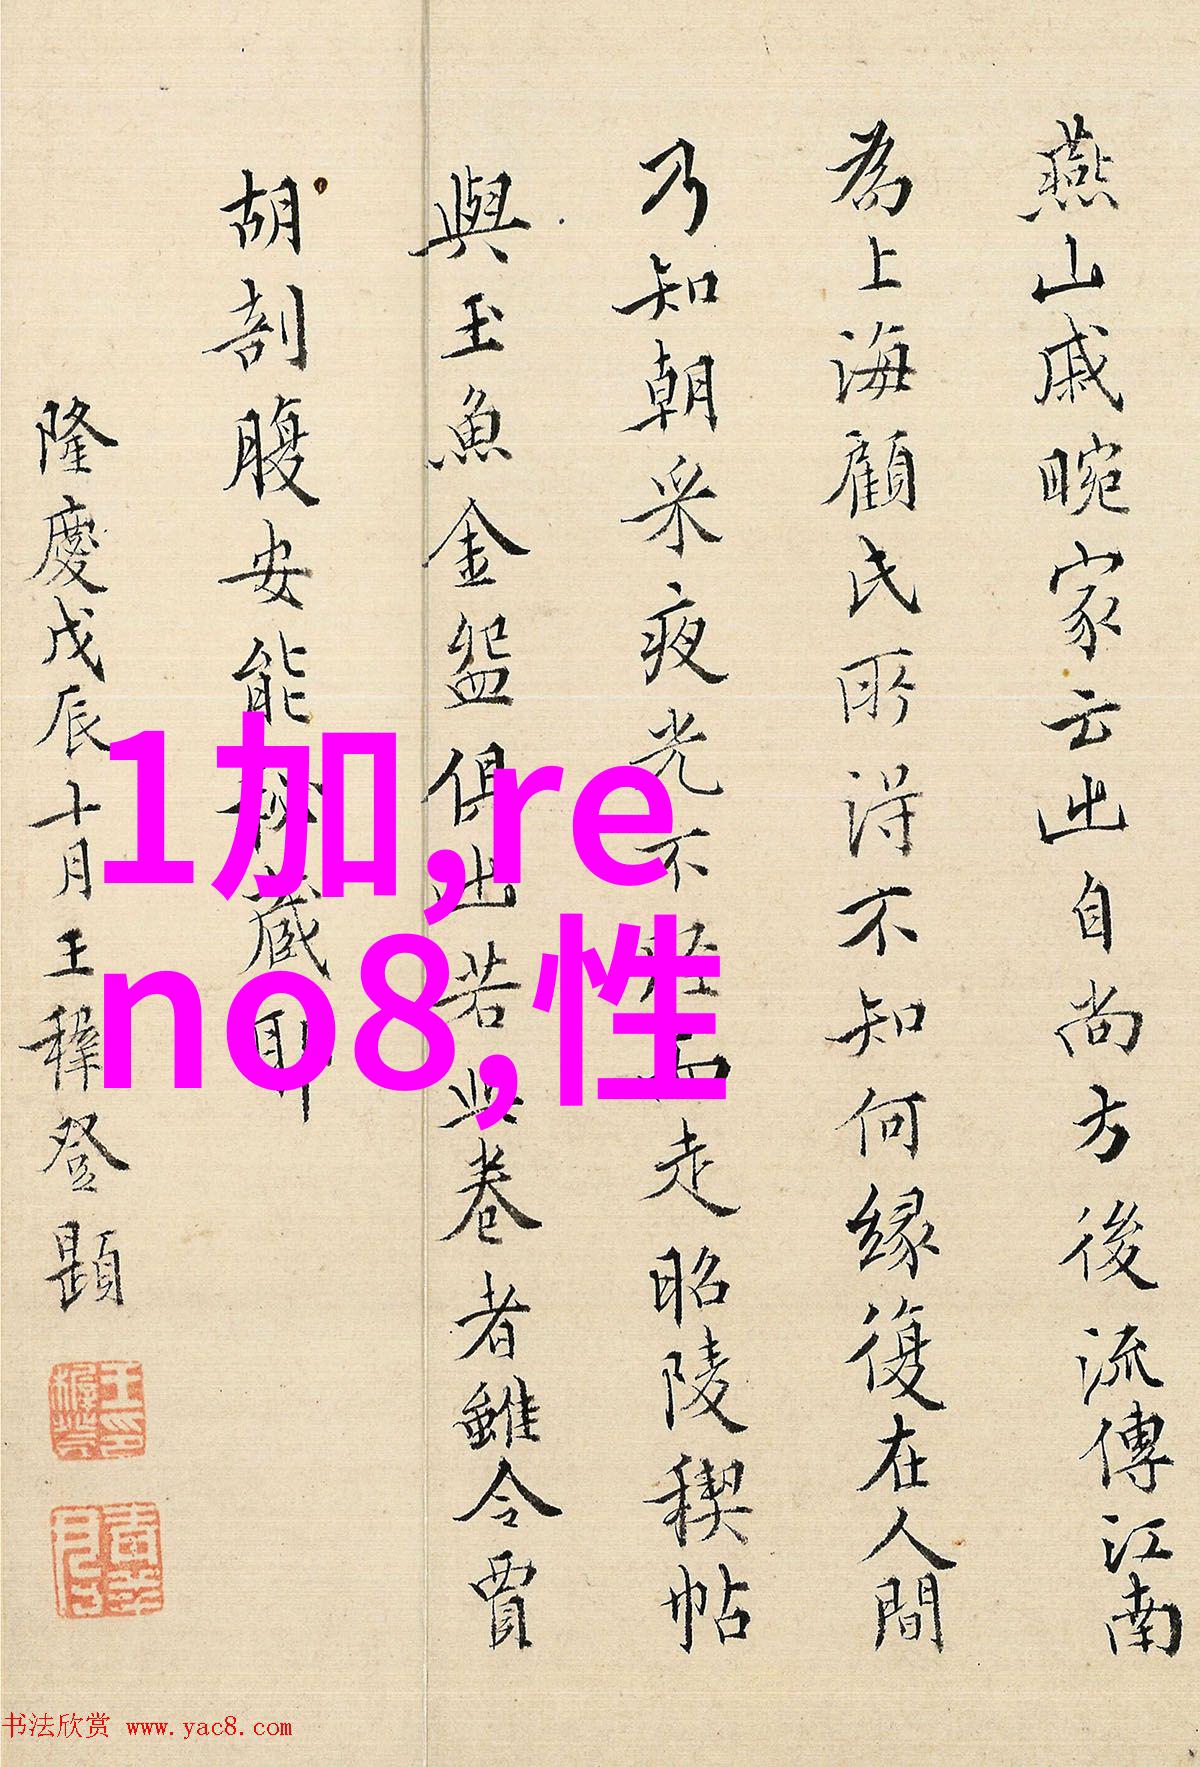 燕山戚畹家云出自尚方後流傳江南
為上海顧氏所得不知何緣復在人間
乃知朝采夜光不脛而走昭陵稧帖
與玉魚金盌俱出若此卷者雖令賈
胡剖腹安能秘藏耶
隆慶戊辰十月王穉登題
1加,re
no8,性
书法欣赏 www.yac8.com